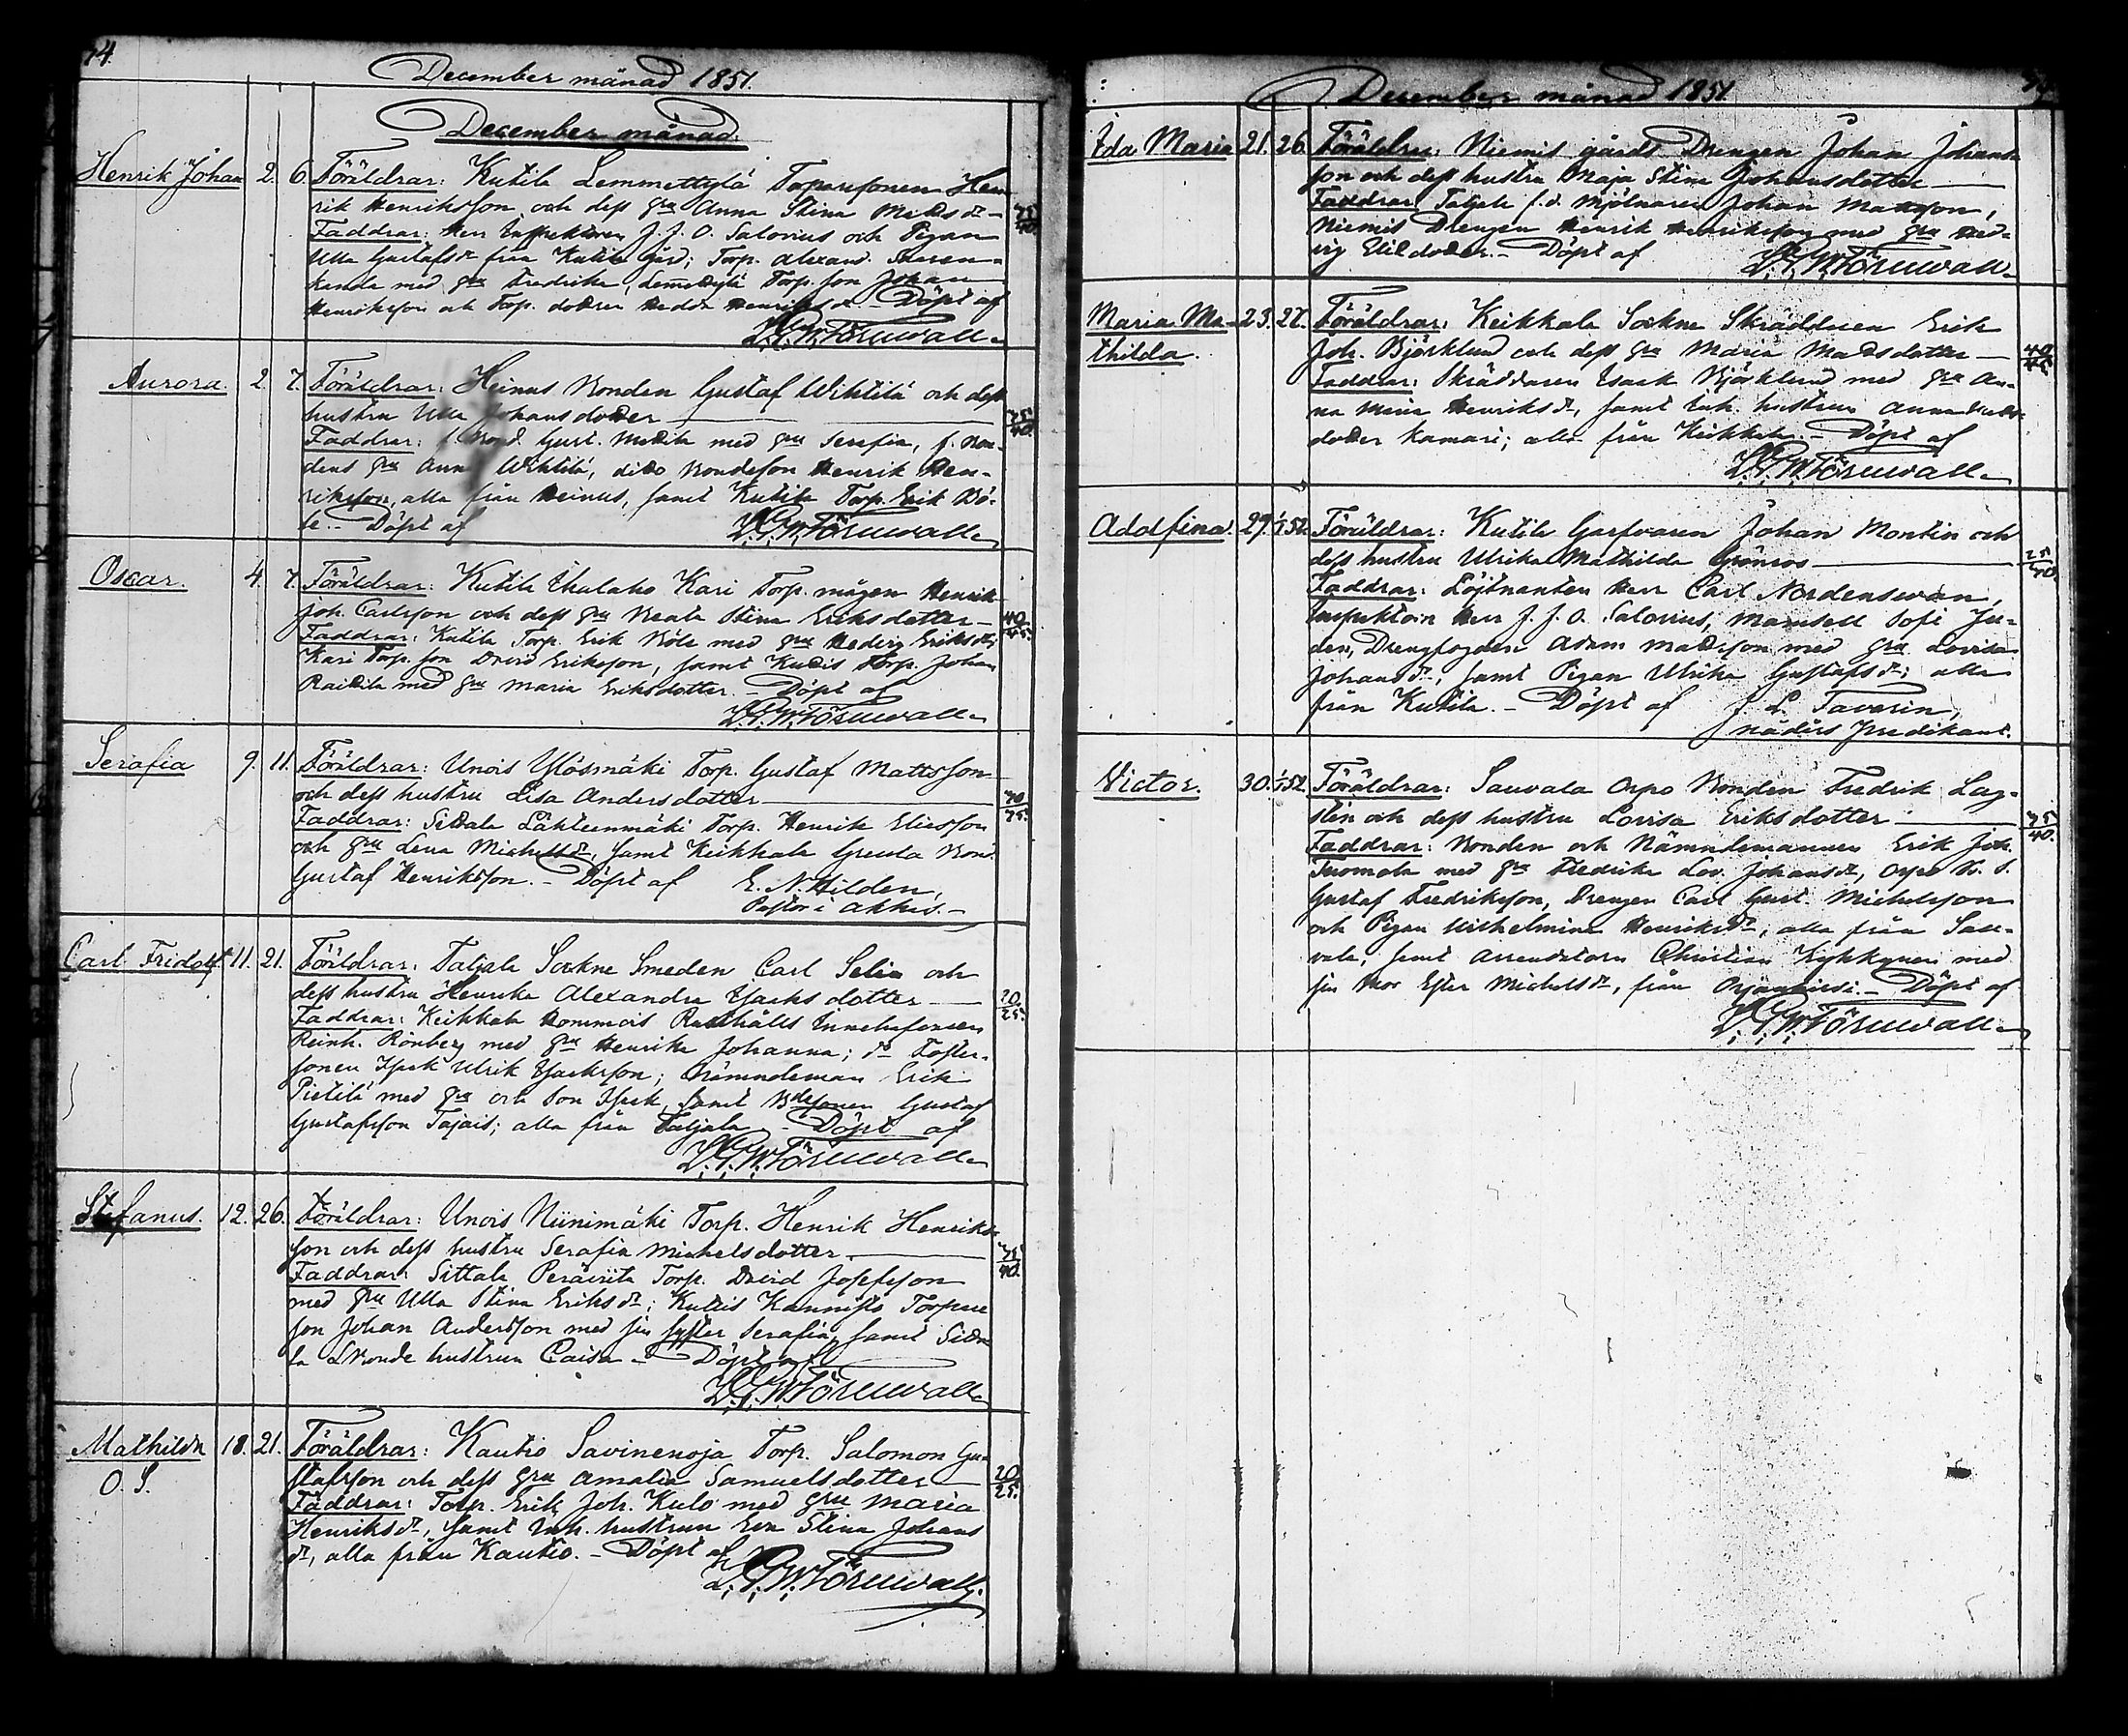 74.
December månad 1851.
December månad.
Henrik Johan 2. 6. Föräldrar: Kutila Lemmettylä Torparesonen Hen
rik Henriksson och dess hu Anna Stina Mattsdr
Faddrar: Herr Inspektoren J. J. O. Salovius och Pigan
Ulla Gustafsdr från Kutila Gård; Torp. Alexand.
med hu Fredrika, Torp. son Johan
Henriksson och Torp. dottren Hedda Henriksdr - Döpt af
Törnwall
Aurora. 2. 7. Föräldrar: Heinus Bonden Gustaf Wihtilä och dess
hustru Ulla Johansdotter
35/40.
Faddrar: Gust. Mattila med hu Serafia, f. Bon-
dens hu Anna Wihtilä, ditto Bondeson Henrik Hen-
riksson, alla från Heinus, samt Kutila Torp. Erik Bö-
le. - Döpt af
Törnwall
Oscar. 4. 7. Föräldrar: Kutila Uhalaho Kari Torp. mågen Henrik
Joh. Carlsson och dess hu Beata Stina Eriksdotter -
40/45.
Faddrar: Kutila Torp. Erik Böle med hu Hedvig Eriksdr,
Kari Torp. son David Eriksson, samt Torp. Johan
Raittila med hu Maria Eriksdotter. - Döpt af
Törnwall
Serafia 9. 11. Föräldrar: Unois Ylösmäki Torp. Gustaf Mattsson
och dess hustru Lisa Andersdotter
Faddrar: Sittala Lähteenmäki Torp. Henrik Eliasson
och hu Lena Michelsdr, samt Keikkala
Gustaf Henriksson. - Döpt af E. N. Hilden,
Pastor i Akkas. -
Carl Fridolf 11. 21. Föräldrar: Taljala Sockne Smeden Carl Selin och
dess hustru Henrika Alexandra Isaksdotter
20/25.
Faddrar: Keikkala Hommois Rusthålls Innehafvaren
Reinh. Rönberg med hu Henrika Johanna; do Foster-
sonen Isak Ulrik Isaksson; Nämndeman Erik
Pietilä med hu och Son Isak, samt Gustaf
Gustafsson Tajais; alla från Taljala. - Döpt af
Törnwall
Stefanus. 12. 26. Föräldrar: Unois Niinimäki Torp. Henrik Henriks-
son och dess hustru Serafia Michelsdotter.
35/40.
Faddrar: Sittala Torp. David Josefsson
med hu Ulla Stina Eriksdr; Kannisto Torpare
son Johan Andersson med sin syster Serafia, samt Sitta
la hustrun Caisa - Döpt af
Törnwall
Mathilda 18. 21. Föräldrar: Kautio Savinenoja Torp. Salomon Gu-
O. S. stafsson och dess hu Amalia Samuelsdotter
20/25.
Faddrar: Torp. Erik Joh. Kulo med hu Maria
Henriksdr, samt Inh. hustrun Eva Stina Johans
dr, alla från Kautio. - Döpt af
Törnwall
December månad 1851.
Ida Maria 21. 26. Föräldrar: Niemis gårds Drengen Johan Johans
son och dess hustru Maja Stina Johansdotter
Faddrar: Taljala f.d. Mjölnaren Johan Mattsson,
Niemis Drengen Henrik Henriksson med hu Hed-
vig Elisdotter. - Döpt af
Törnwall
Maria Ma- 23. 27. Föräldrar: Keikkala Sockne Skräddaren Erik
thilda. Joh. Björklund och dess hu Maria Mattsdotter
40/45
Faddrar: Skräddaren Isaak Björklund med hu An-
na Maria Henriksdr, samt Inh. hustrun Anna Matts-
dotter Kamari; alla från Keikkala - Döpt af
Törnwall
Adolfina. 29. 1/1 52. Föräldrar: Kutila Garfvaren Johan Montin och
dess hustru Ulrika Mathilda Grönroos
Faddrar: Löjtnanten Herr Carl Nordenswan,
Inspektorn Herr J. J. O. Salovius, Mamsell Sofi Ju-
den, Drengfogden Adam Mattsson med hu Lovisa
Johansdr, samt Pigan Ulrika Gustafsdr; alla
från Kutila. - Döpt af J. L. Taverin,
nådårs Predikant.
Victor. 30. 1/1 52. Föräldrar: Sauvala Orpo Bonden Fredrik Lag-
sten och dess hustru Lovisa Eriksdotter
35/40.
Faddrar: Bonden och Nämndemannen Erik Joh.
Tuomola med hu Fredrika Lov. Johansdr, Orpo B. S.
Gustaf Fredriksson, Drengen Carl Gust. Michelsson
och Pigan Wilhelmina Henriksdr, alla från Sau-
vala, samt Arrendatorn Christian Kykkynen med
sin Mor Ester Michelsdr, från - Döpt af
Törnwall